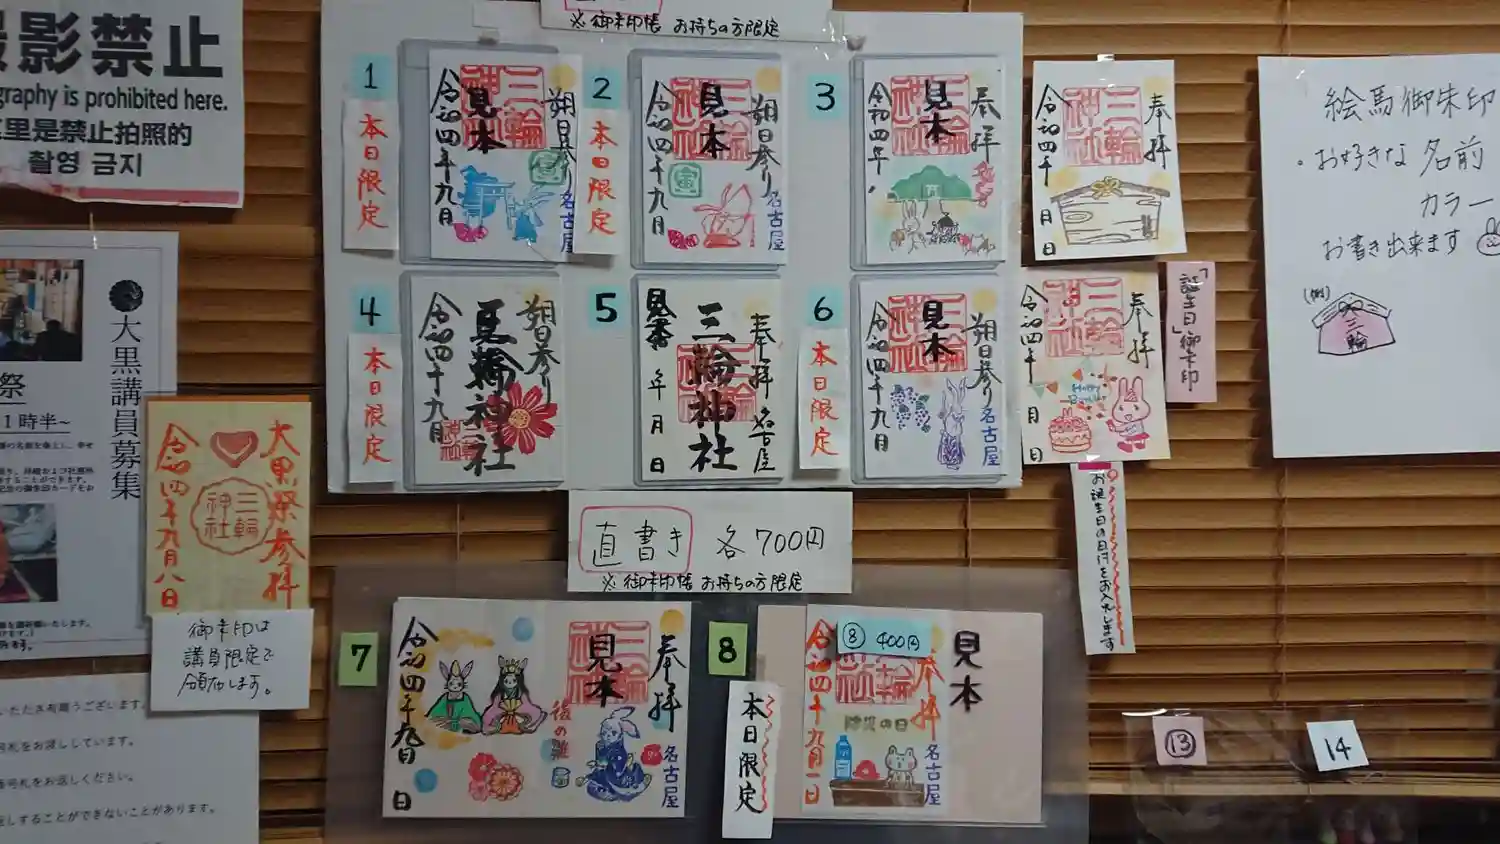 撮影禁止
graphy is prohibited here.
里是禁止拍照的
촬영 금지
大黒講員募集
祭
1時半~
大黒祭参拝
三輪神社
令和四年九月八日
御朱印は
講員限定で
頒布します。
いただき有難うございます。
号札をお渡ししています。
番号札をお返しください。
しすることができないことがあります。
※御朱印帳 お持ちの方限定
1
本日限定
朔日参り
三輪神社
見本
令和四年九月
名古屋
2
本日限定
朔日参り
三輪神社
見本
寅
令和四年九月
名古屋
3
奉拝
三輪神社
見本
令和四年
奉拝
三輪神社
令和四年
月
日
4
本日限定
朔日参り
三輪神社
見本
令和四年九月
5
奉拝
名古屋
三輪神社
年月日
6
本日限定
朔日参り
三輪神社
見本
令和四年九月
名古屋
奉拝
三輪神社
令和四年
月
日
Happy
Birthday
「誕生日御朱印」
お誕生日の日付をお入れします
直書き 各700円
※御朱印帳 お持ちの方限定
7
奉拝
三輪神社
見本
後の雛
名古屋
令和四年九月
日
8
本日限定
⑧ 400円
見本
奉拝
防災の日
名古屋
令和四年九月一日
絵馬御朱印
・お好きな 名前
カラー
お書き出来ます
(例)
三輪
⑬
14